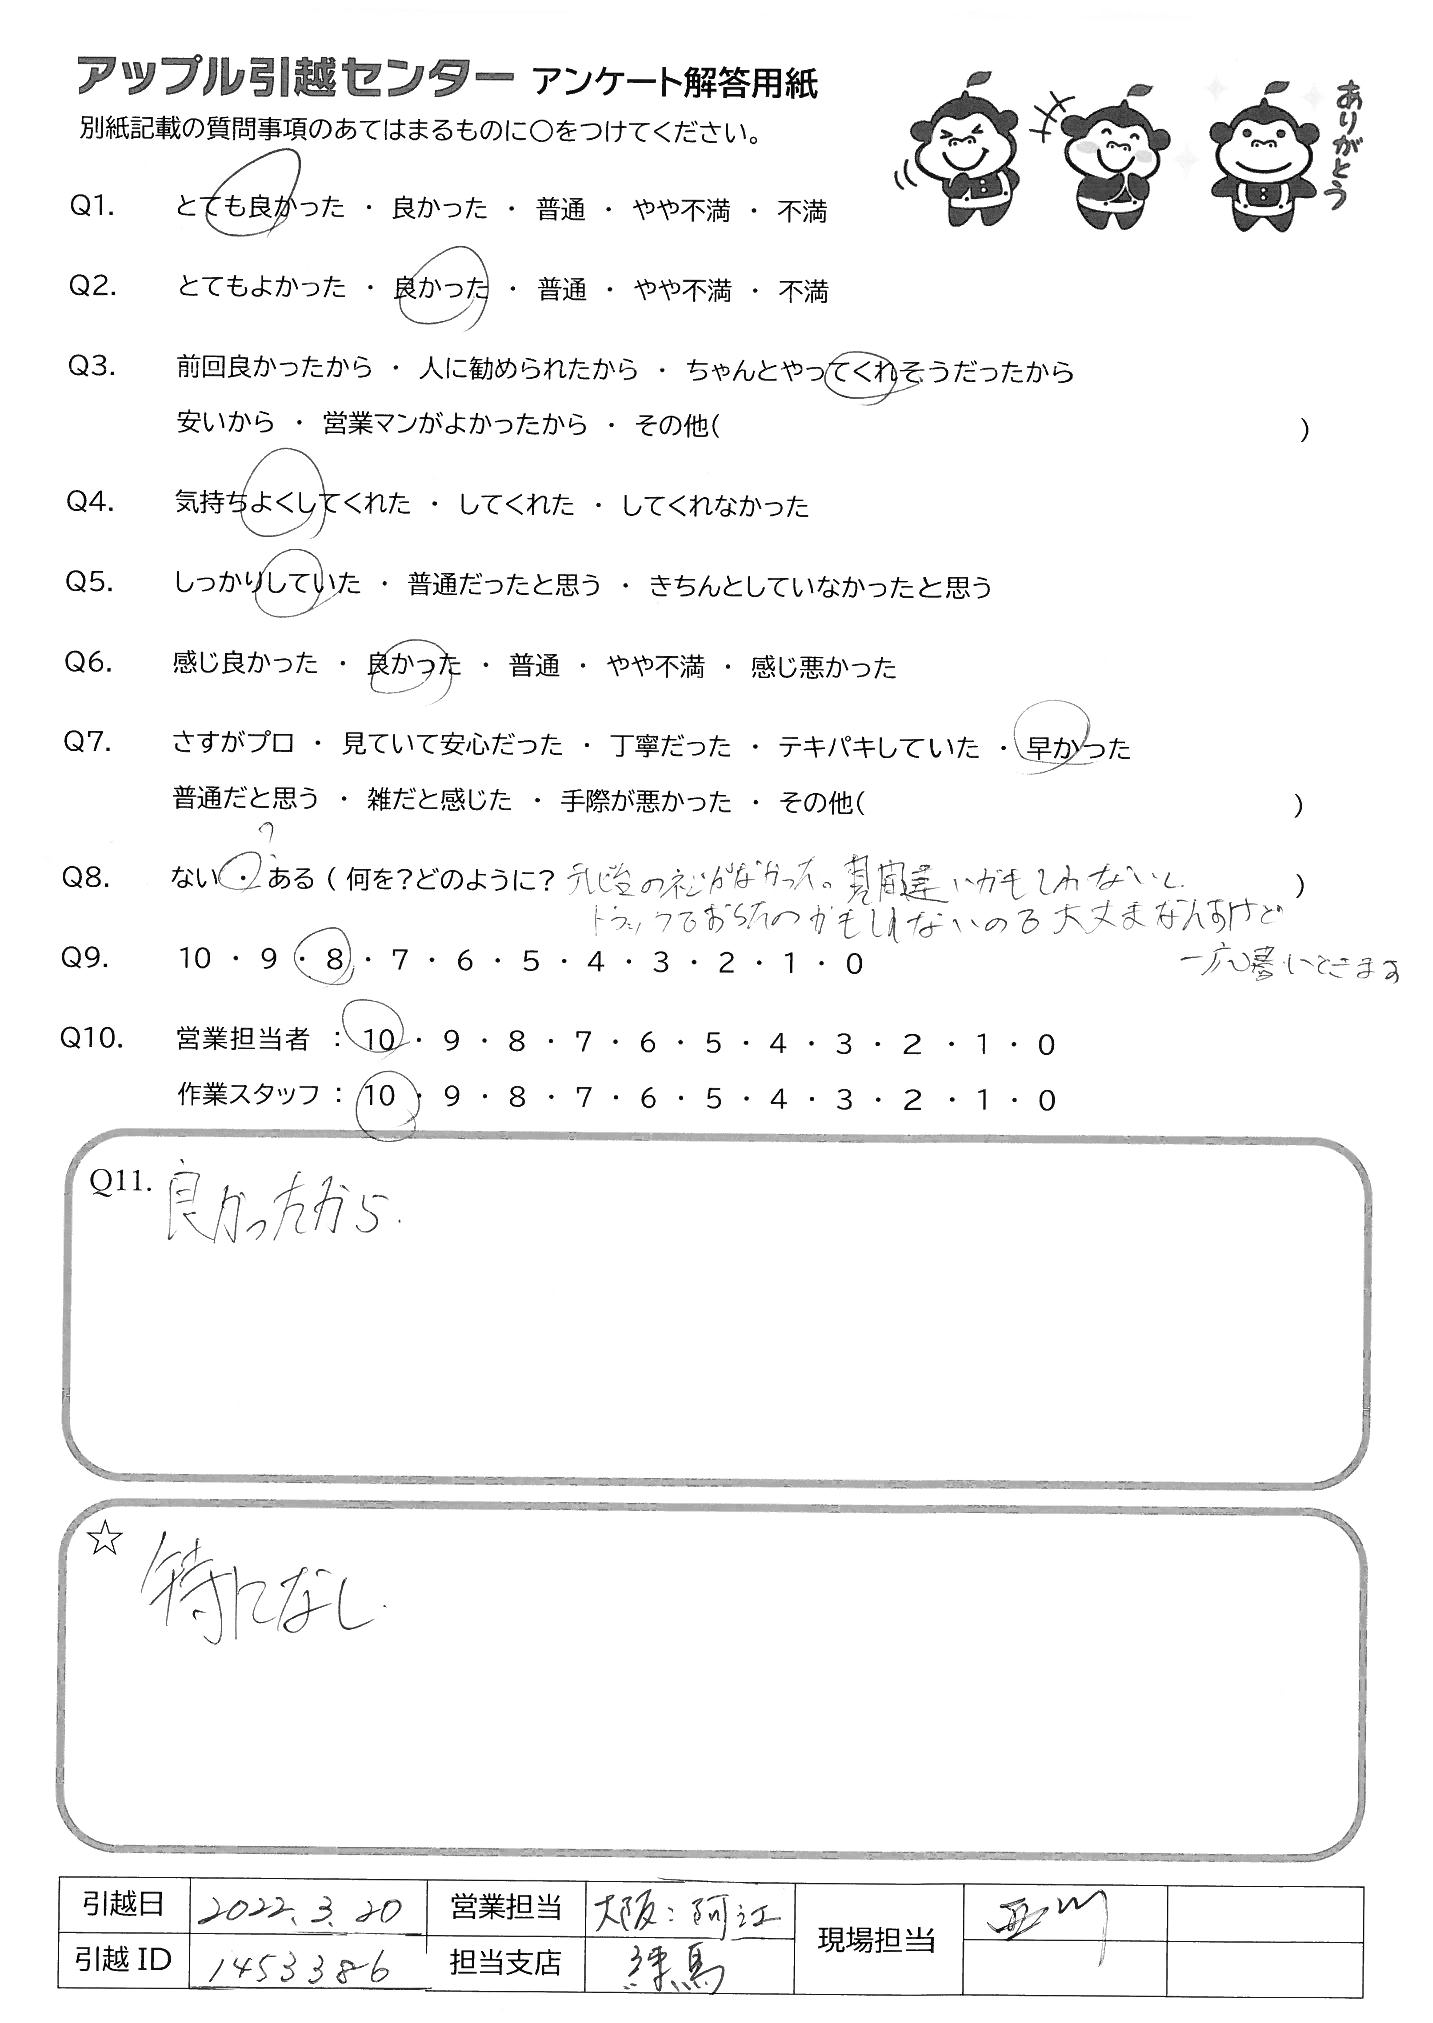 アップル引越センター アンケート解答用紙
別紙記載の質問事項のあてはまるものに〇をつけてください。
ありがとう
Q1. とても良かった ・ 良かった ・ 普通 ・ やや不満 ・ 不満
Q2. とてもよかった ・ 良かった ・ 普通 ・ やや不満 ・ 不満
Q3. 前回良かったから ・ 人に勧められたから ・ ちゃんとやってくれそうだったから
安いから ・ 営業マンがよかったから ・ その他( )
Q4. 気持ちよくしてくれた ・ してくれた ・ してくれなかった
Q5. しっかりしていた ・ 普通だったと思う ・ きちんとしていなかったと思う
Q6. 感じ良かった ・ 良かった ・ 普通 ・ やや不満 ・ 感じ悪かった
Q7. さすがプロ ・ 見ていて安心だった ・ 丁寧だった ・ テキパキしていた ・ 早かった
普通だと思う ・ 雑だと感じた ・ 手際が悪かった ・ その他( )
?
Q8. ない ・ ある ( 何を?どのように? テレビ台のネジがなかった。見間違いかもしれないし )
トラックでおちたのかもしれないので大丈夫なんですけど
一応書いときます
Q9. 10 ・ 9 ・ 8 ・ 7 ・ 6 ・ 5 ・ 4 ・ 3 ・ 2 ・ 1 ・ 0
Q10. 営業担当者 : 10 ・ 9 ・ 8 ・ 7 ・ 6 ・ 5 ・ 4 ・ 3 ・ 2 ・ 1 ・ 0
作業スタッフ : 10 ・ 9 ・ 8 ・ 7 ・ 6 ・ 5 ・ 4 ・ 3 ・ 2 ・ 1 ・ 0
Q11. 良かったから.
☆ 特になし.
引越日 2022.3.20 営業担当 大阪:阿江 現場担当 西川
引越 ID 1453386 担当支店 練馬